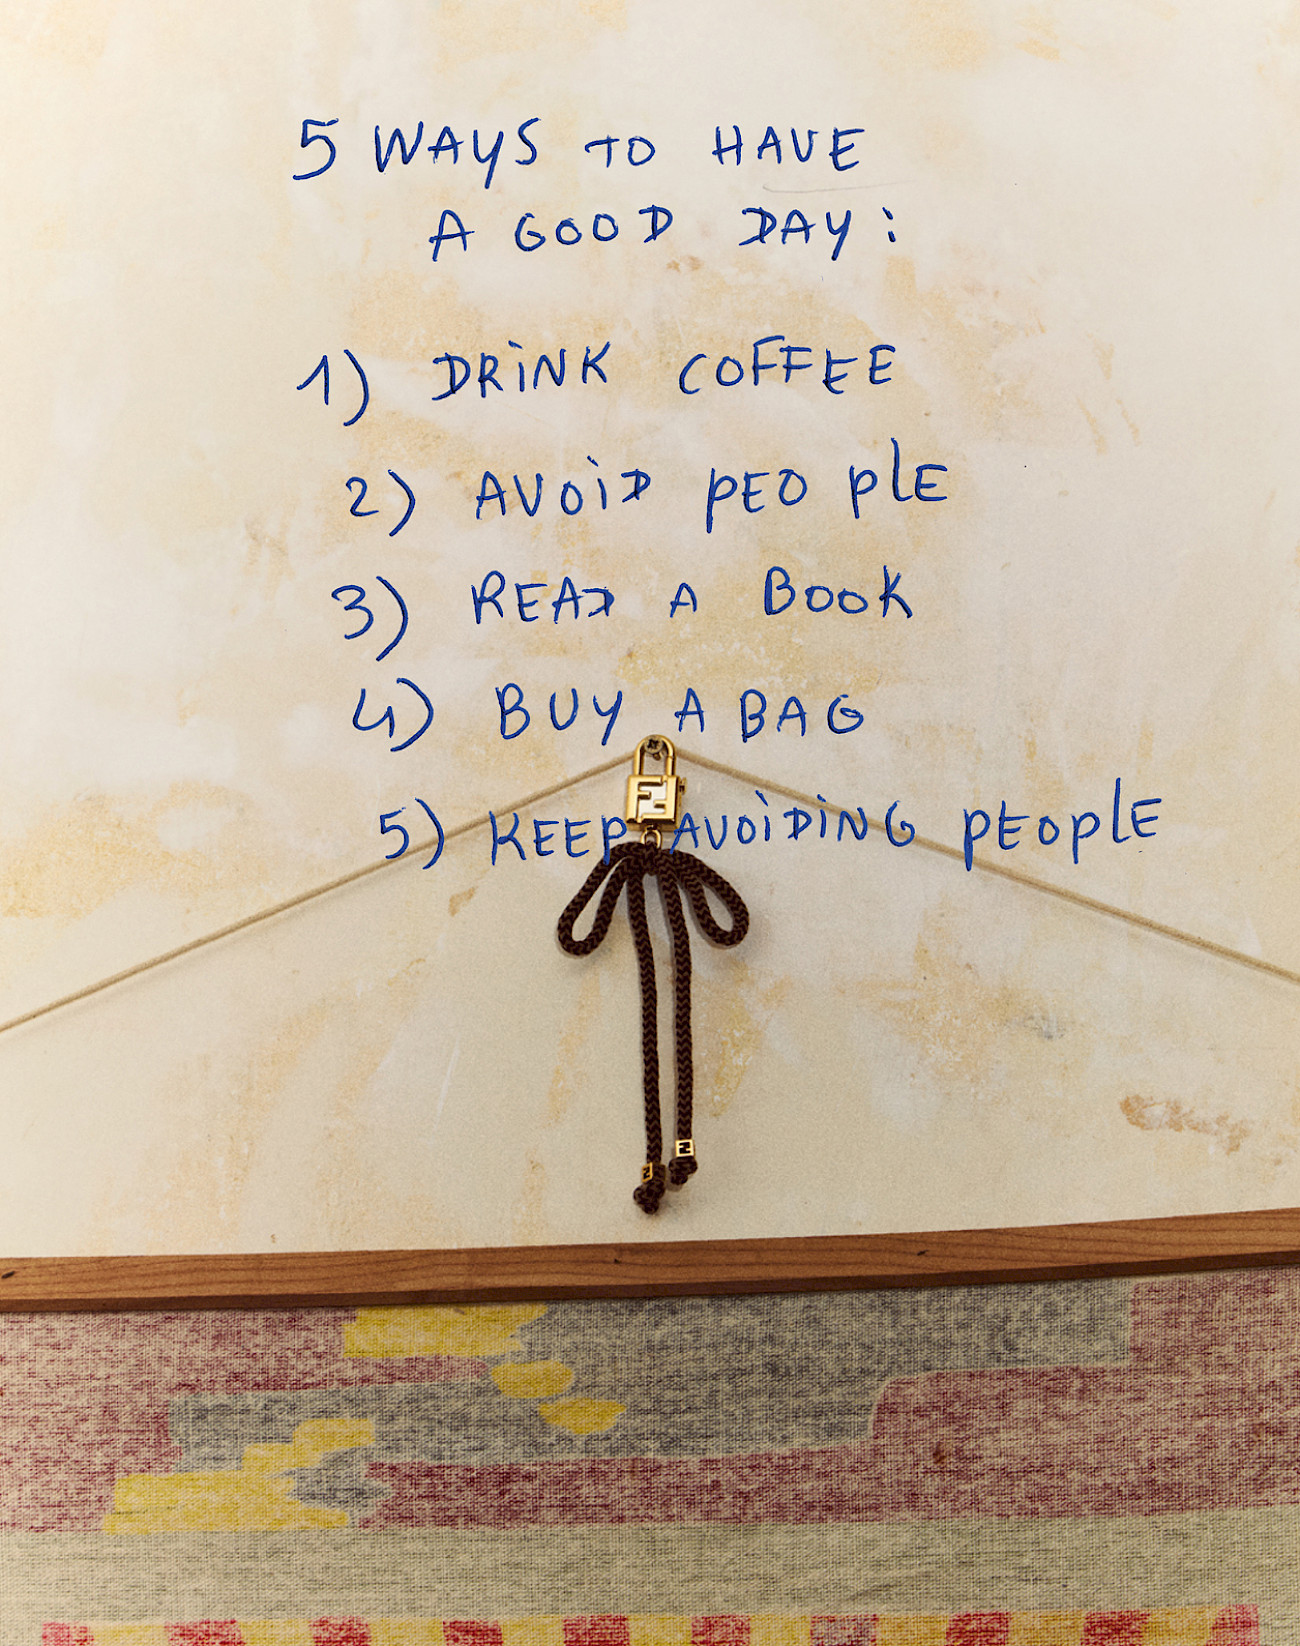 5 WAYS TO HAVE
A GOOD DAY:
1) DRINK COFFEE
2) AVOID PEOPLE
3) READ A BOOK
4) BUY A BAG
5) KEEP AVOIDING PEOPLE